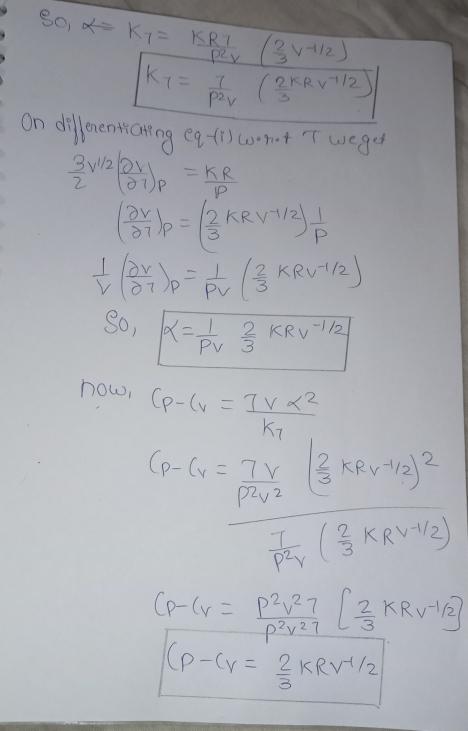 So, α = K7 = KR7/P²V (2/3 V-1/2)
K7 = 7/P²V (2KRV-1/2/3)
On differenticating eq-(i) w.r.t T we get
3V1/2/2 (∂V/∂7)P = KR/P
(∂V/∂7)P = (2/3 KRV-1/2) 1/P
1/V (∂V/∂7)P = 1/PV (2/3 KRV-1/2)
So, α = 1/PV 2/3 KRV-1/2
now, CP-CV = 7Vα2/K7
CP-CV = 7V/P²V² (2/3 KRV-1/2)2
7/P²V (2/3 KRV-1/2)
CP-CV = P²V²7/P²V²7 [2/3 KRV-1/2]
CP-CV = 2/3 KRV-1/2